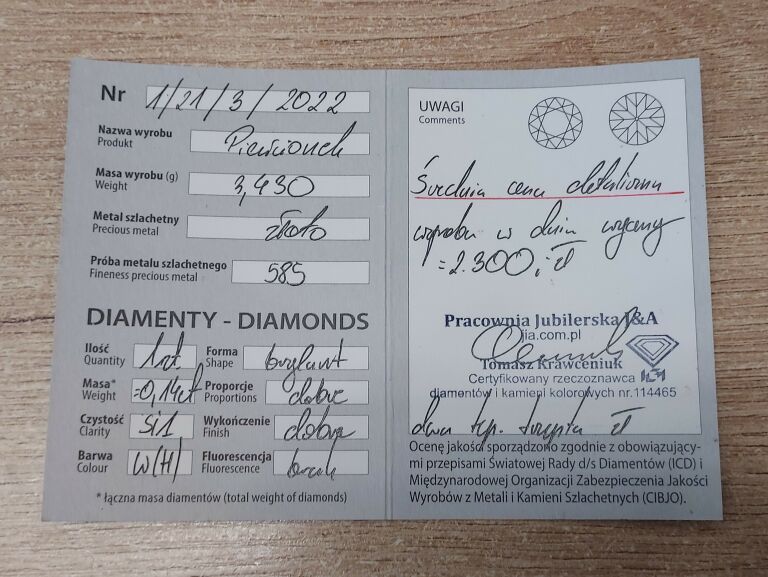 Nr 1/21/3/2022
Nazwa wyrobu Pierścionek
Produkt
Masa wyrobu (g) 3,430
Weight
Metal szlachetny złoto
Precious metal
Próba metalu szlachetnego 585
Fineness precious metal
DIAMENTY - DIAMONDS
Ilość 1szt Forma brylant
Quantity Shape
Masa* =0,14ct Proporcje dobre
Weight Proportions
Czystość Si1 Wykończenie dobre
Clarity Finish
Barwa W(H) Fluorescencja brak
Colour Fluorescence
* łączna masa diamentów (total weight of diamonds)
UWAGI
Comments
Średnia cena detaliczna
wyrobu w dniu wyceny
=2.300,- zł
Pracownia Jubilerska J&A
jia.com.pl
Tomasz Krawceniuk
Certyfikowany rzeczoznawca
diamentów i kamieni kolorowych nr.114465
dwa tys. trzysta zł
Ocenę jakości sporządzono zgodnie z obowiązujący-
mi przepisami Światowej Rady d/s Diamentów (ICD) i
Międzynarodowej Organizacji Zabezpieczenia Jakości
Wyrobów z Metali i Kamieni Szlachetnych (CIBJO).